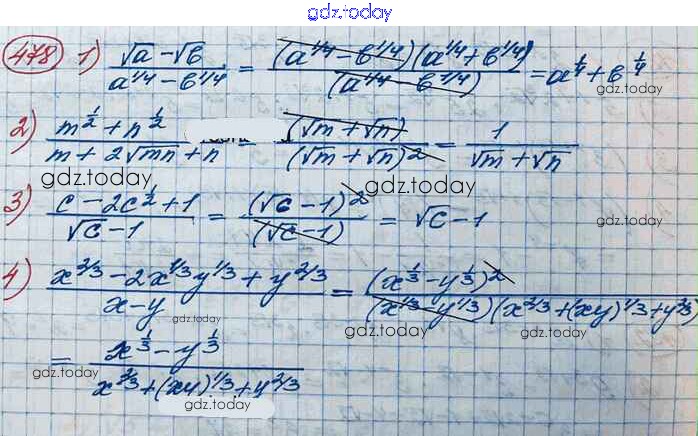 gdz.today
478 1) (√a - √b)/(a^1/4 - b^1/4) = ((a^1/4 - b^1/4)(a^1/4 + b^1/4))/(a^1/4 - b^1/4) = a^1/4 + b^1/4
gdz.today
2) (m^1/2 + n^1/2)/(m + 2√mn + n) = (√m + √n)/(√m + √n)^2 = 1/(√m + √n)
gdz.today gdz.today gdz.today
3) (c - 2c^1/2 + 1)/(√c - 1) = (√c - 1)^2/(√c - 1) = √c - 1
gdz.today
4) (x^2/3 - 2x^1/3 y^1/3 + y^2/3)/(x - y) = (x^1/3 - y^1/3)^2/((x^1/3 - y^1/3)(x^2/3 + (xy)^1/3 + y^2/3))
gdz.today gdz.today gdz.today
= (x^1/3 - y^1/3)/(x^2/3 + (xy)^1/3 + y^2/3)
gdz.today gdz.today gdz.today
gdz.today